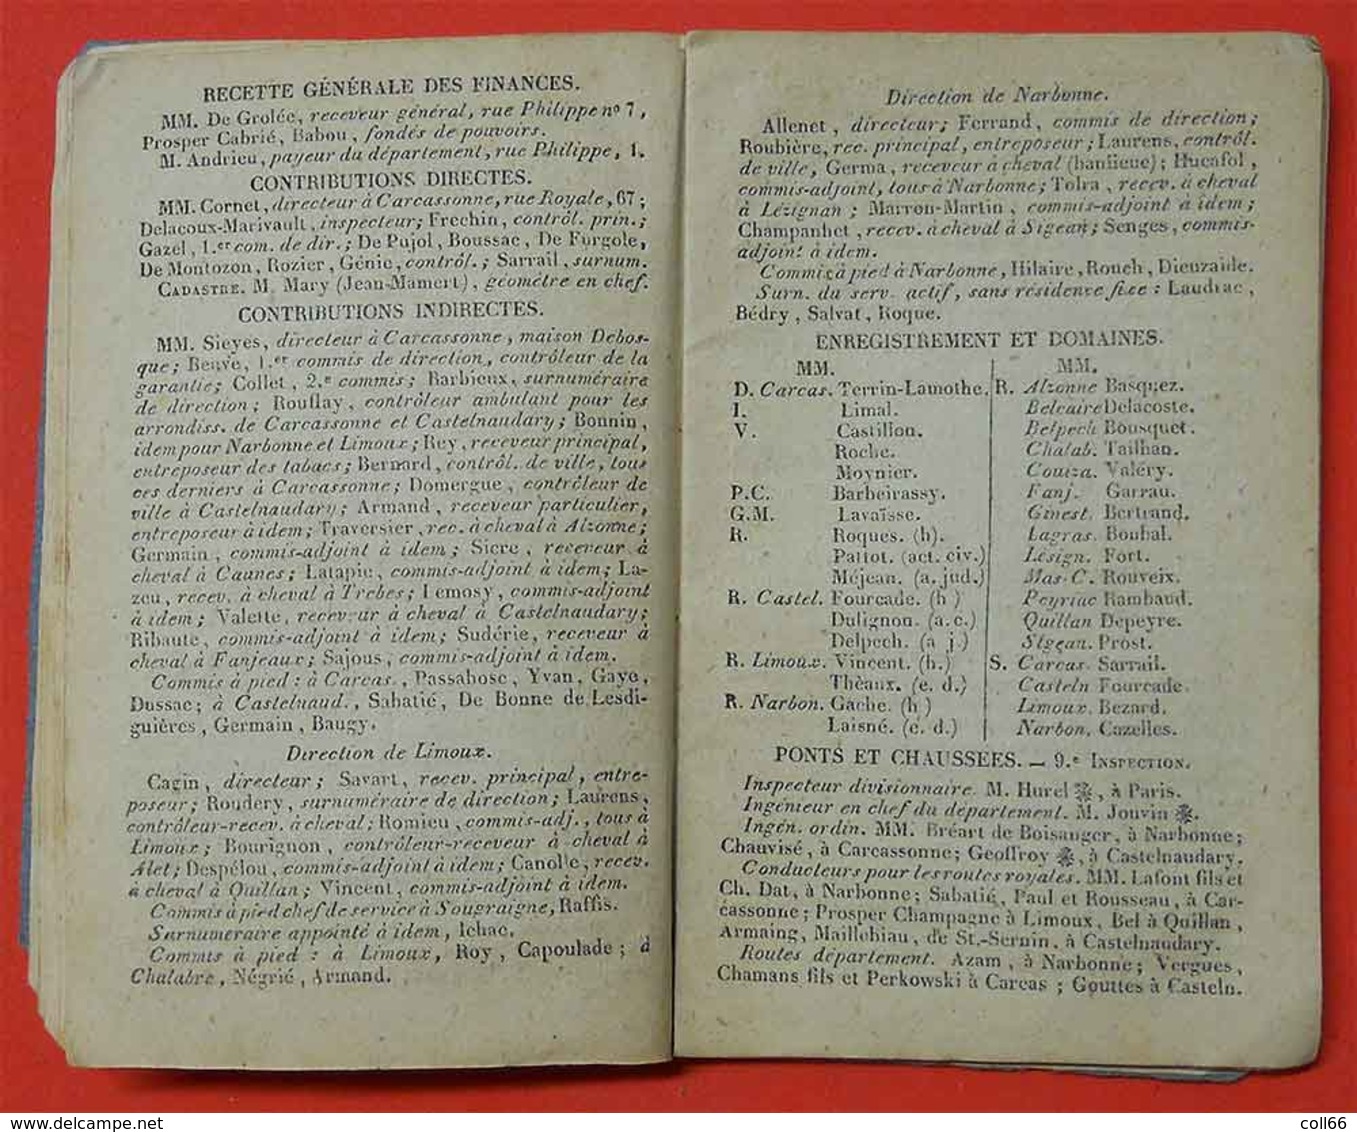 RECETTE GÉNÉRALE DES FINANCES.
MM. De Grolée, receveur général, rue Philippe nº 7,
Prosper Cabrié, Babou, fondés de pouvoirs.
M. Andrieu, payeur du département, rue Philippe, 1.
CONTRIBUTIONS DIRECTES.
MM. Cornet, directeur à Carcassonne, rue Royale, 67;
Delacoux-Marivault, inspecteur; Frechin, contról. prin.;
Gazel, 1.er com. de dir.; De Pujol, Boussac, De Furgole,
De Montozon, Rozier, Génie, contról.; Sarrail, surnum.
CADASTRE. M. Mary (Jean-Mamert), géomètre en chef.
CONTRIBUTIONS INDIRECTES.
MM. Sieyes, directeur à Carcassonne, maison Debos-
que; Beuve, 1.er commis de direction, contrôleur de la
garantie; Collet, 2.e commis; Barbieux, surnuméraire
de direction; Rouflay, contrôleur ambulant pour les
arrondiss. de Carcassonne et Castelnaudary; Bonnin,
idem pour Narbonne et Limoux; Rey, receveur principal,
entreposeur des tabacs; Bernard, contról. de ville, tous
ces derniers à Carcassonne; Domergue, contrôleur de
ville à Castelnaudary; Armand, receveur particulier,
entreposeur à idem; Traversier, rec. à cheval à Alzonne;
Germain, commis-adjoint à idem; Sicre, receveur à
cheval à Caunes; Latapie, commis-adjoint à idem; La-
zeu, recev. à cheval à Trebes; Lemosy, commis-adjoint
à idem; Valette, receveur à cheval à Castelnaudary;
Ribaute, commis-adjoint à idem; Sudérie, receveur à
cheval à Fanjeaux; Sajous, commis-adjoint à idem.
Commis à pied: à Carcas., Passabosc, Yvan, Gaye,
Dussac; à Castelnaud., Sabatié, De Bonne de Lesdi-
guières, Germain, Baugy.
Direction de Limoux.
Cagin, directeur; Savart, recev. principal, entre-
poseur; Roudery, surnuméraire de direction; Laurens,
contrôleur-recev. à cheval; Romieu, commis-adj., tous à
Limoux; Bourignon, contrôleur-receveur à cheval à
Alet; Despélou, commis-adjoint à idem; Canolle, recev.
à cheval à Quillan; Vincent, commis-adjoint à idem.
Commis à pied chef de service à Sougraigne, Raffis.
Surnumeraire appointé à idem, Ichac.
Commis à pied: à Limoux, Roy, Capoulade; à
Chalabre, Négrié, Armand.
Direction de Narbonne.
Allenet, directeur; Ferrand, commis de direction;
Roubière, rec. principal, entreposeur; Laurens, contról.
de ville, Germa, receveur à cheval (banlieue); Hucafol,
commis-adjoint, tous à Narbonne; Tolra, recev. à cheval
à Lézignan; Marron-Martin, commis-adjoint à idem;
Champanhet, recev. à cheval à Sigean; Senges, commis-
adjoint à idem.
Commis à pied à Narbonne, Hilaire, Rouch, Dieuzaide.
Surn. du serv. actif, sans résidence fixe: Laudrac,
Bédry, Salvat, Roque.
ENREGISTREMENT ET DOMAINES.
MM.
D. Carcas. Terrin-Lamothe.
I. Limal.
V. Castillon.
Roche.
Moynier.
P.C. Barbeirassy.
G.M. Lavaïsse.
R. Roques. (h).
Pattot. (act. civ.)
Méjean. (a. jud.)
R. Castel. Fourcade. (h)
Dulignon. (a.c.)
Delpech. (a j.)
R. Limoux. Vincent. (h.)
Thèaux. (e. d.)
R. Narbon. Gâche. (h)
Laisné. (e. d.)
MM.
R. Alzonne Basquez.
Belcaire Delacoste.
Belpech Bousquet.
Chalab. Tailhan.
Couiza. Valéry.
Fanj. Garrau.
Ginest. Bertrand.
Lagras. Bouhal.
Lésign. Fort.
Mas-C. Rouveix.
Peyriac Rambaud.
Quillan Depeyre.
Sigean. Prost.
S. Carcas. Sarrail.
Casteln Fourcade.
Limoux. Bezard.
Narbon. Cazelles.
PONTS ET CHAUSSEES. — 9.e INSPECTION.
Inspecteur divisionnaire. M. Hurel ✻, à Paris.
Ingénieur en chef du département. M. Jouvin ✻.
Ingén. ordin. MM. Bréart de Boisanger, à Narbonne;
Chauvisé, à Carcassonne; Geoffroy ✻, à Castelnaudary.
Conducteurs pour les routes royales. MM. Lafont fils et
Ch. Dat, à Narbonne; Sabatié, Paul et Rousseau, à Car-
cassonne; Prosper Champagne à Limoux, Bel à Quillan,
Armaing, Maillebiau, de St.-Sernin, à Castelnaudary.
Routes département. Azam, à Narbonne; Vergues,
Chamans fils et Perkowski à Carcas; Gouttes à Casteln.
coll66